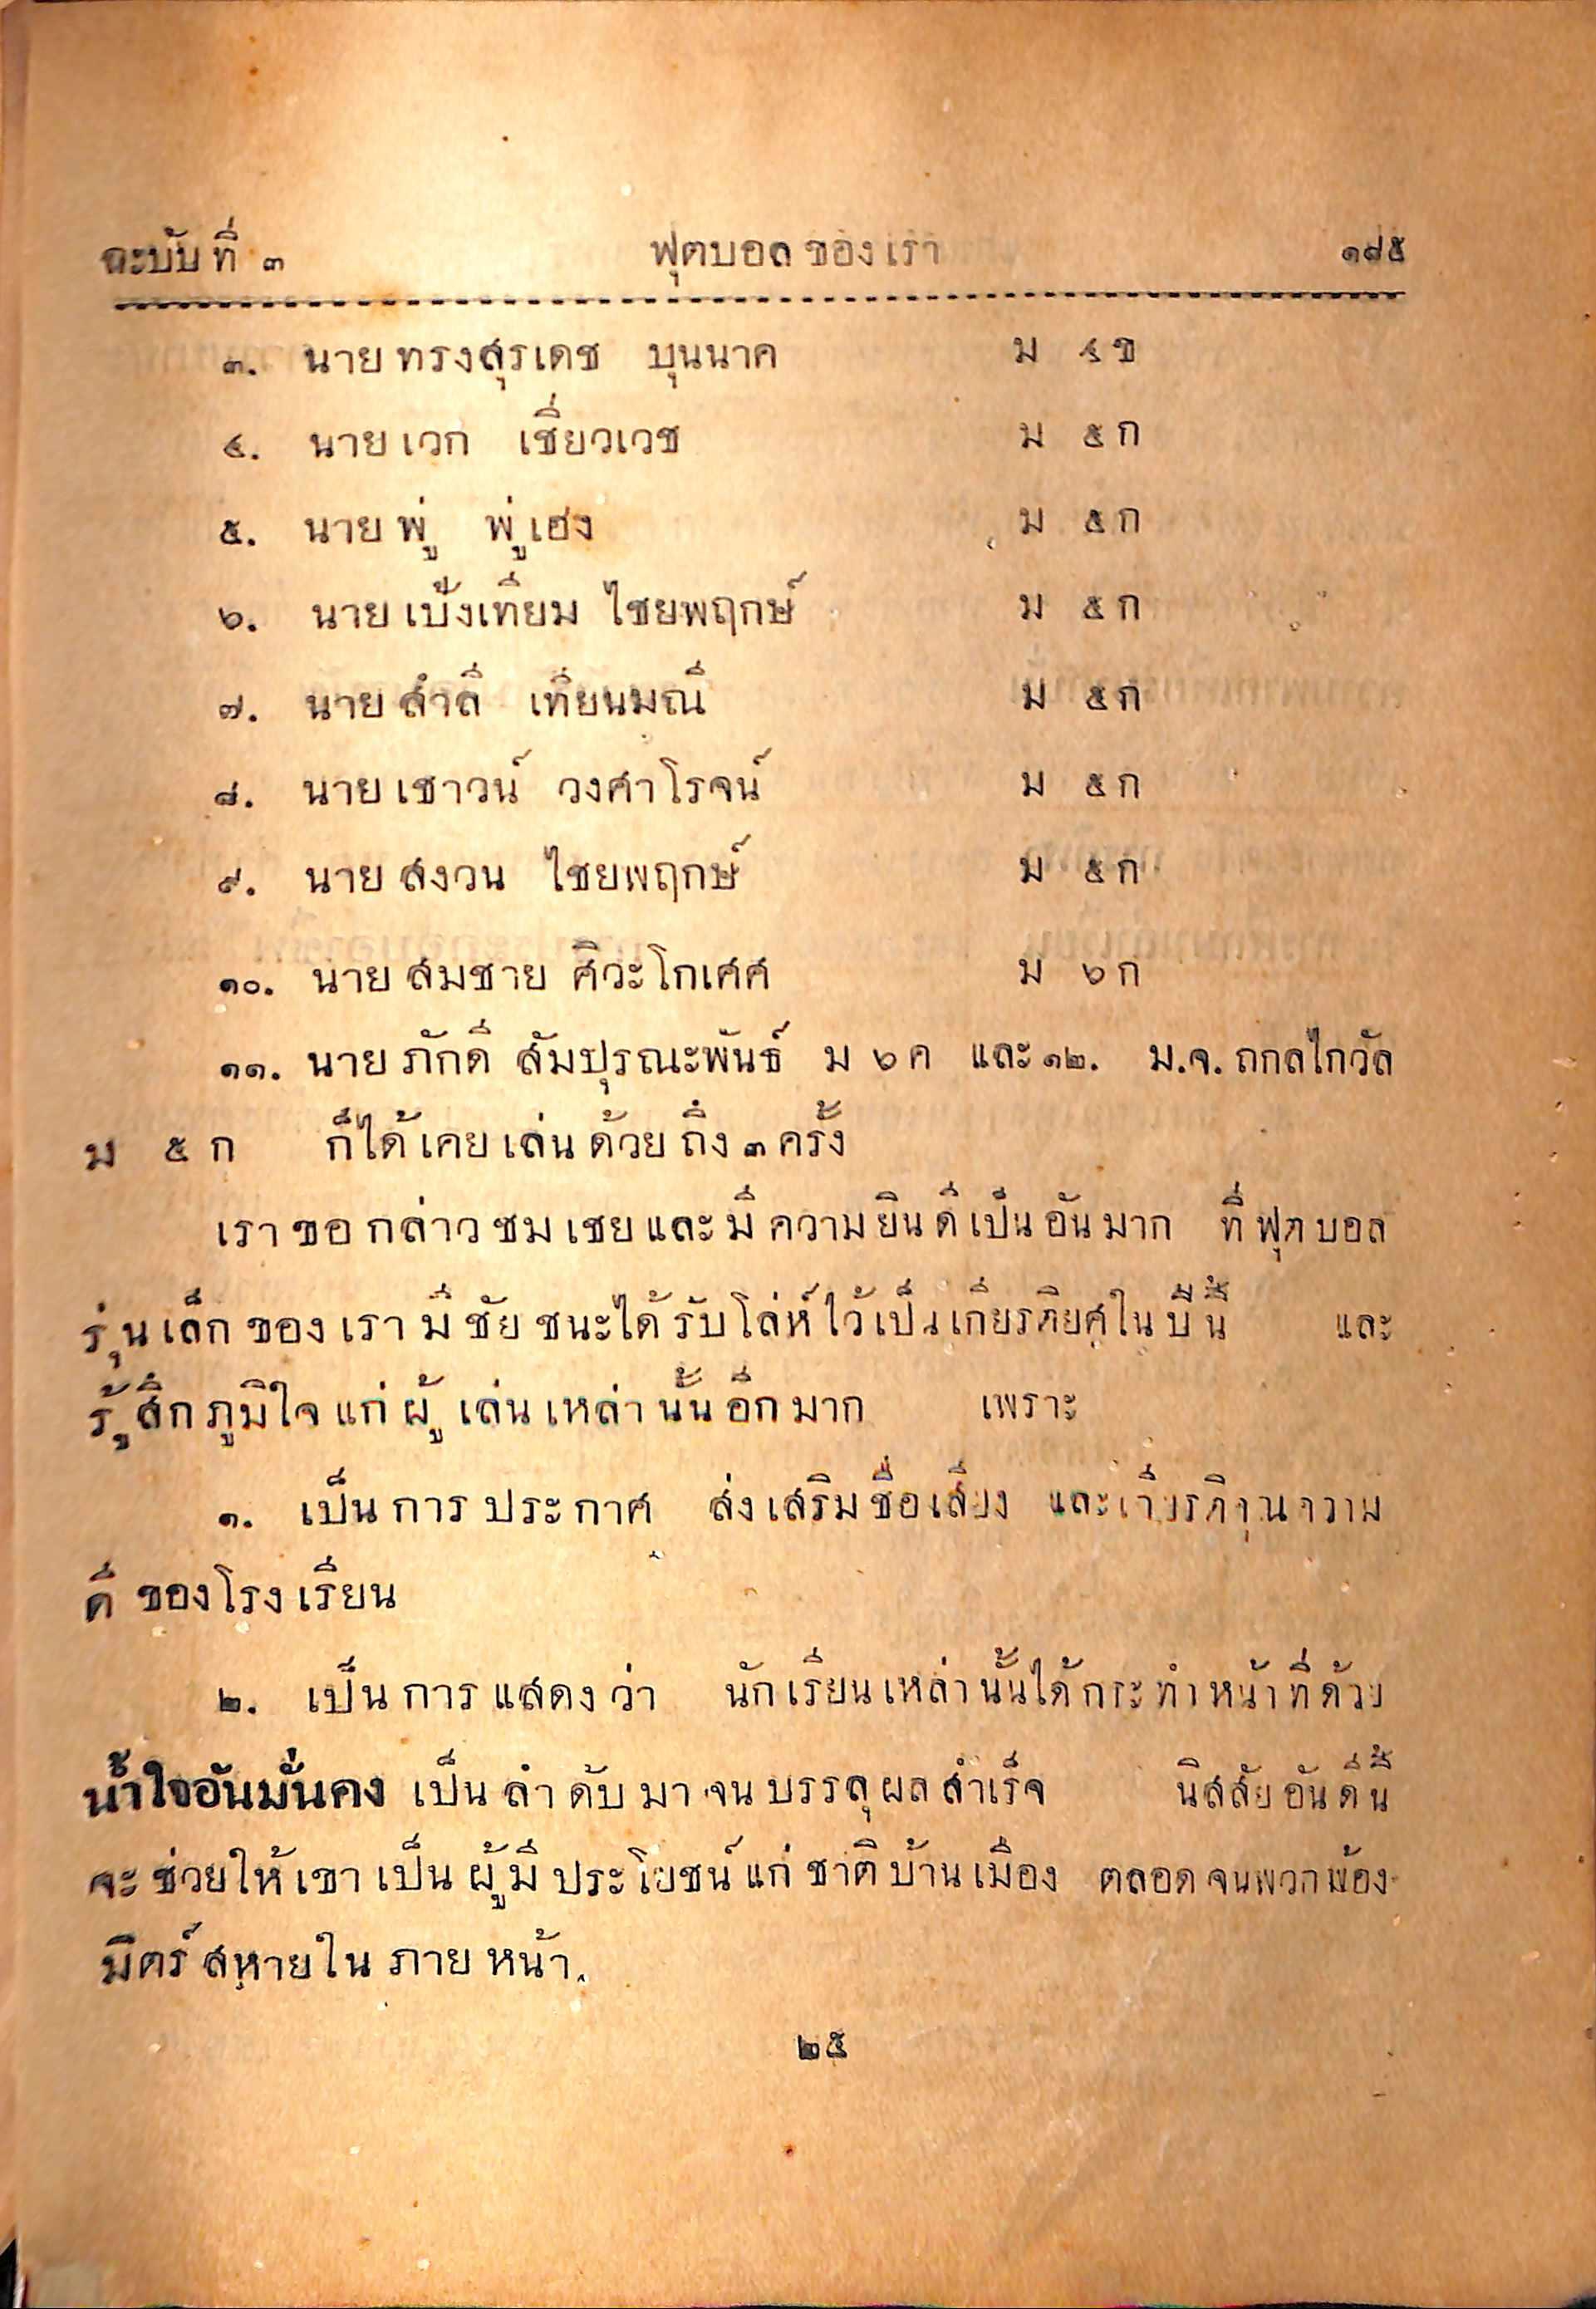 ฉะบับที่ ๓ ฟุตบอลของเรา ๑๘๕
๓. นายทรงสุรเดช บุนนาค ม ๔ข
๔. นายเวก เชี่ยวเวช ม ๕ก
๕. นายพู่ พู่เฮง ม ๕ก
๖. นายเบ้งเทียม ไชยพฤกษ์ ม ๕ก
๗. นายสำลี เทียนมณี ม ๕ก
๘. นายเชาวน์ วงศาโรจน์ ม ๕ก
๙. นายสงวน ไชยพฤกษ์ ม ๕ก
๑๐. นายสมชาย ศิวะโกเศศ ม ๖ก
๑๑. นายภักดี สัมปุรณะพันธ์ ม ๖ค และ๑๒. ม.จ.ถกลไกวัล
ม ๕ก ก็ได้เคยเล่นด้วยถึง ๓ ครั้ง
เราขอกล่าวชมเชยและมีความยินดีเป็นอันมาก ที่ฟุตบอล
รุ่นเล็กของเรามีชัยชนะได้รับโล่ห์ไว้เป็นเกียรติยศในปีนี้ และ
รู้สึกภูมิใจแก่ผู้เล่นเหล่านั้นอีกมาก เพราะ
๑. เป็นการประกาศ ส่งเสริมชื่อเสียง และเกียรติคุณความ
ดีของโรงเรียน
๒. เป็นการแสดงว่า นักเรียนเหล่านั้นได้กระทำหน้าที่ด้วย
น้ำใจอันมั่นคง เป็นลำดับมาจนบรรลุผลสำเร็จ นิสสัยอันดีนี้
จะช่วยให้เขาเป็นผู้มีประโยชน์แก่ชาติบ้านเมือง ตลอดจนพวกพ้อง
มิตร์สหายในภายหน้า.
๒๕